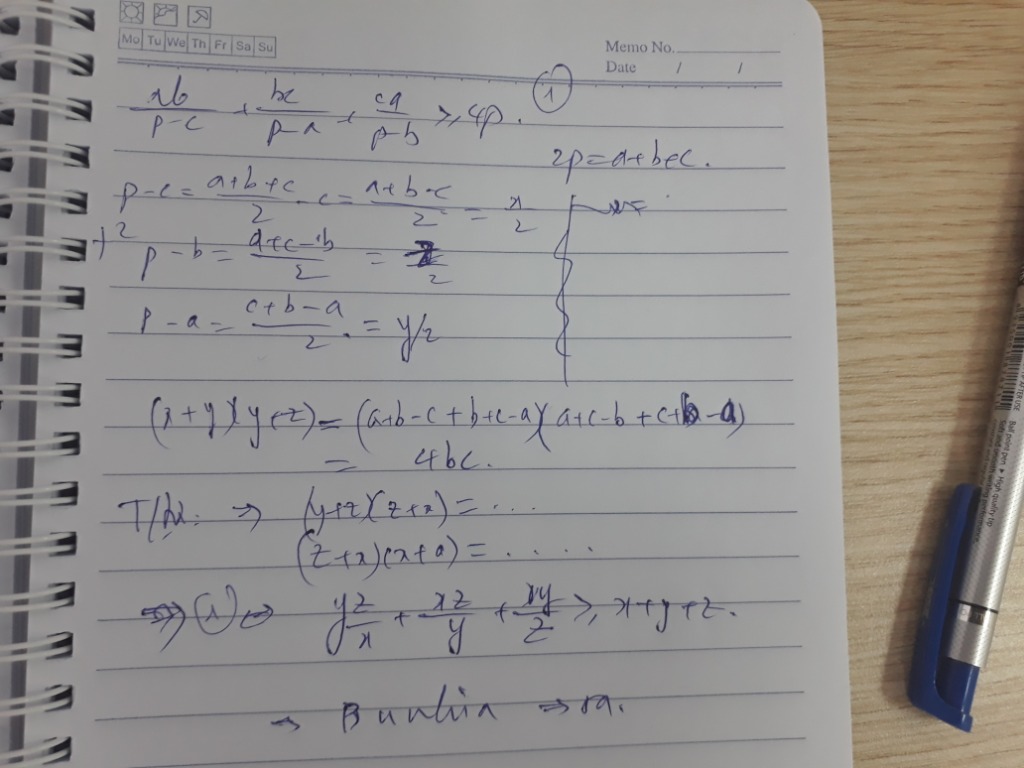 Mo Tu We Th Fr Sa Su
Memo No.
Date / /
ab/(p-c) + bc/(p-a) + ca/(p-b) ≥ 4p. (1)
2p = a+b+c.
p-c = (a+b+c)/2 - c = (a+b-c)/2 = x/2
p-b = (a+c-b)/2 = z/2
p-a = (c+b-a)/2 = y/2
(x+y)(y+z) = (a+b-c+b+c-a)(a+c-b+c+b-a)
= 4bc.
⇒ (y+z)(z+x) = ...
(z+x)(x+a) = .....
⇔ yz/x + xz/y + xy/z ≥ x+y+z.
→ Bunhia ⇒ ra.
Ball point pen • High quality